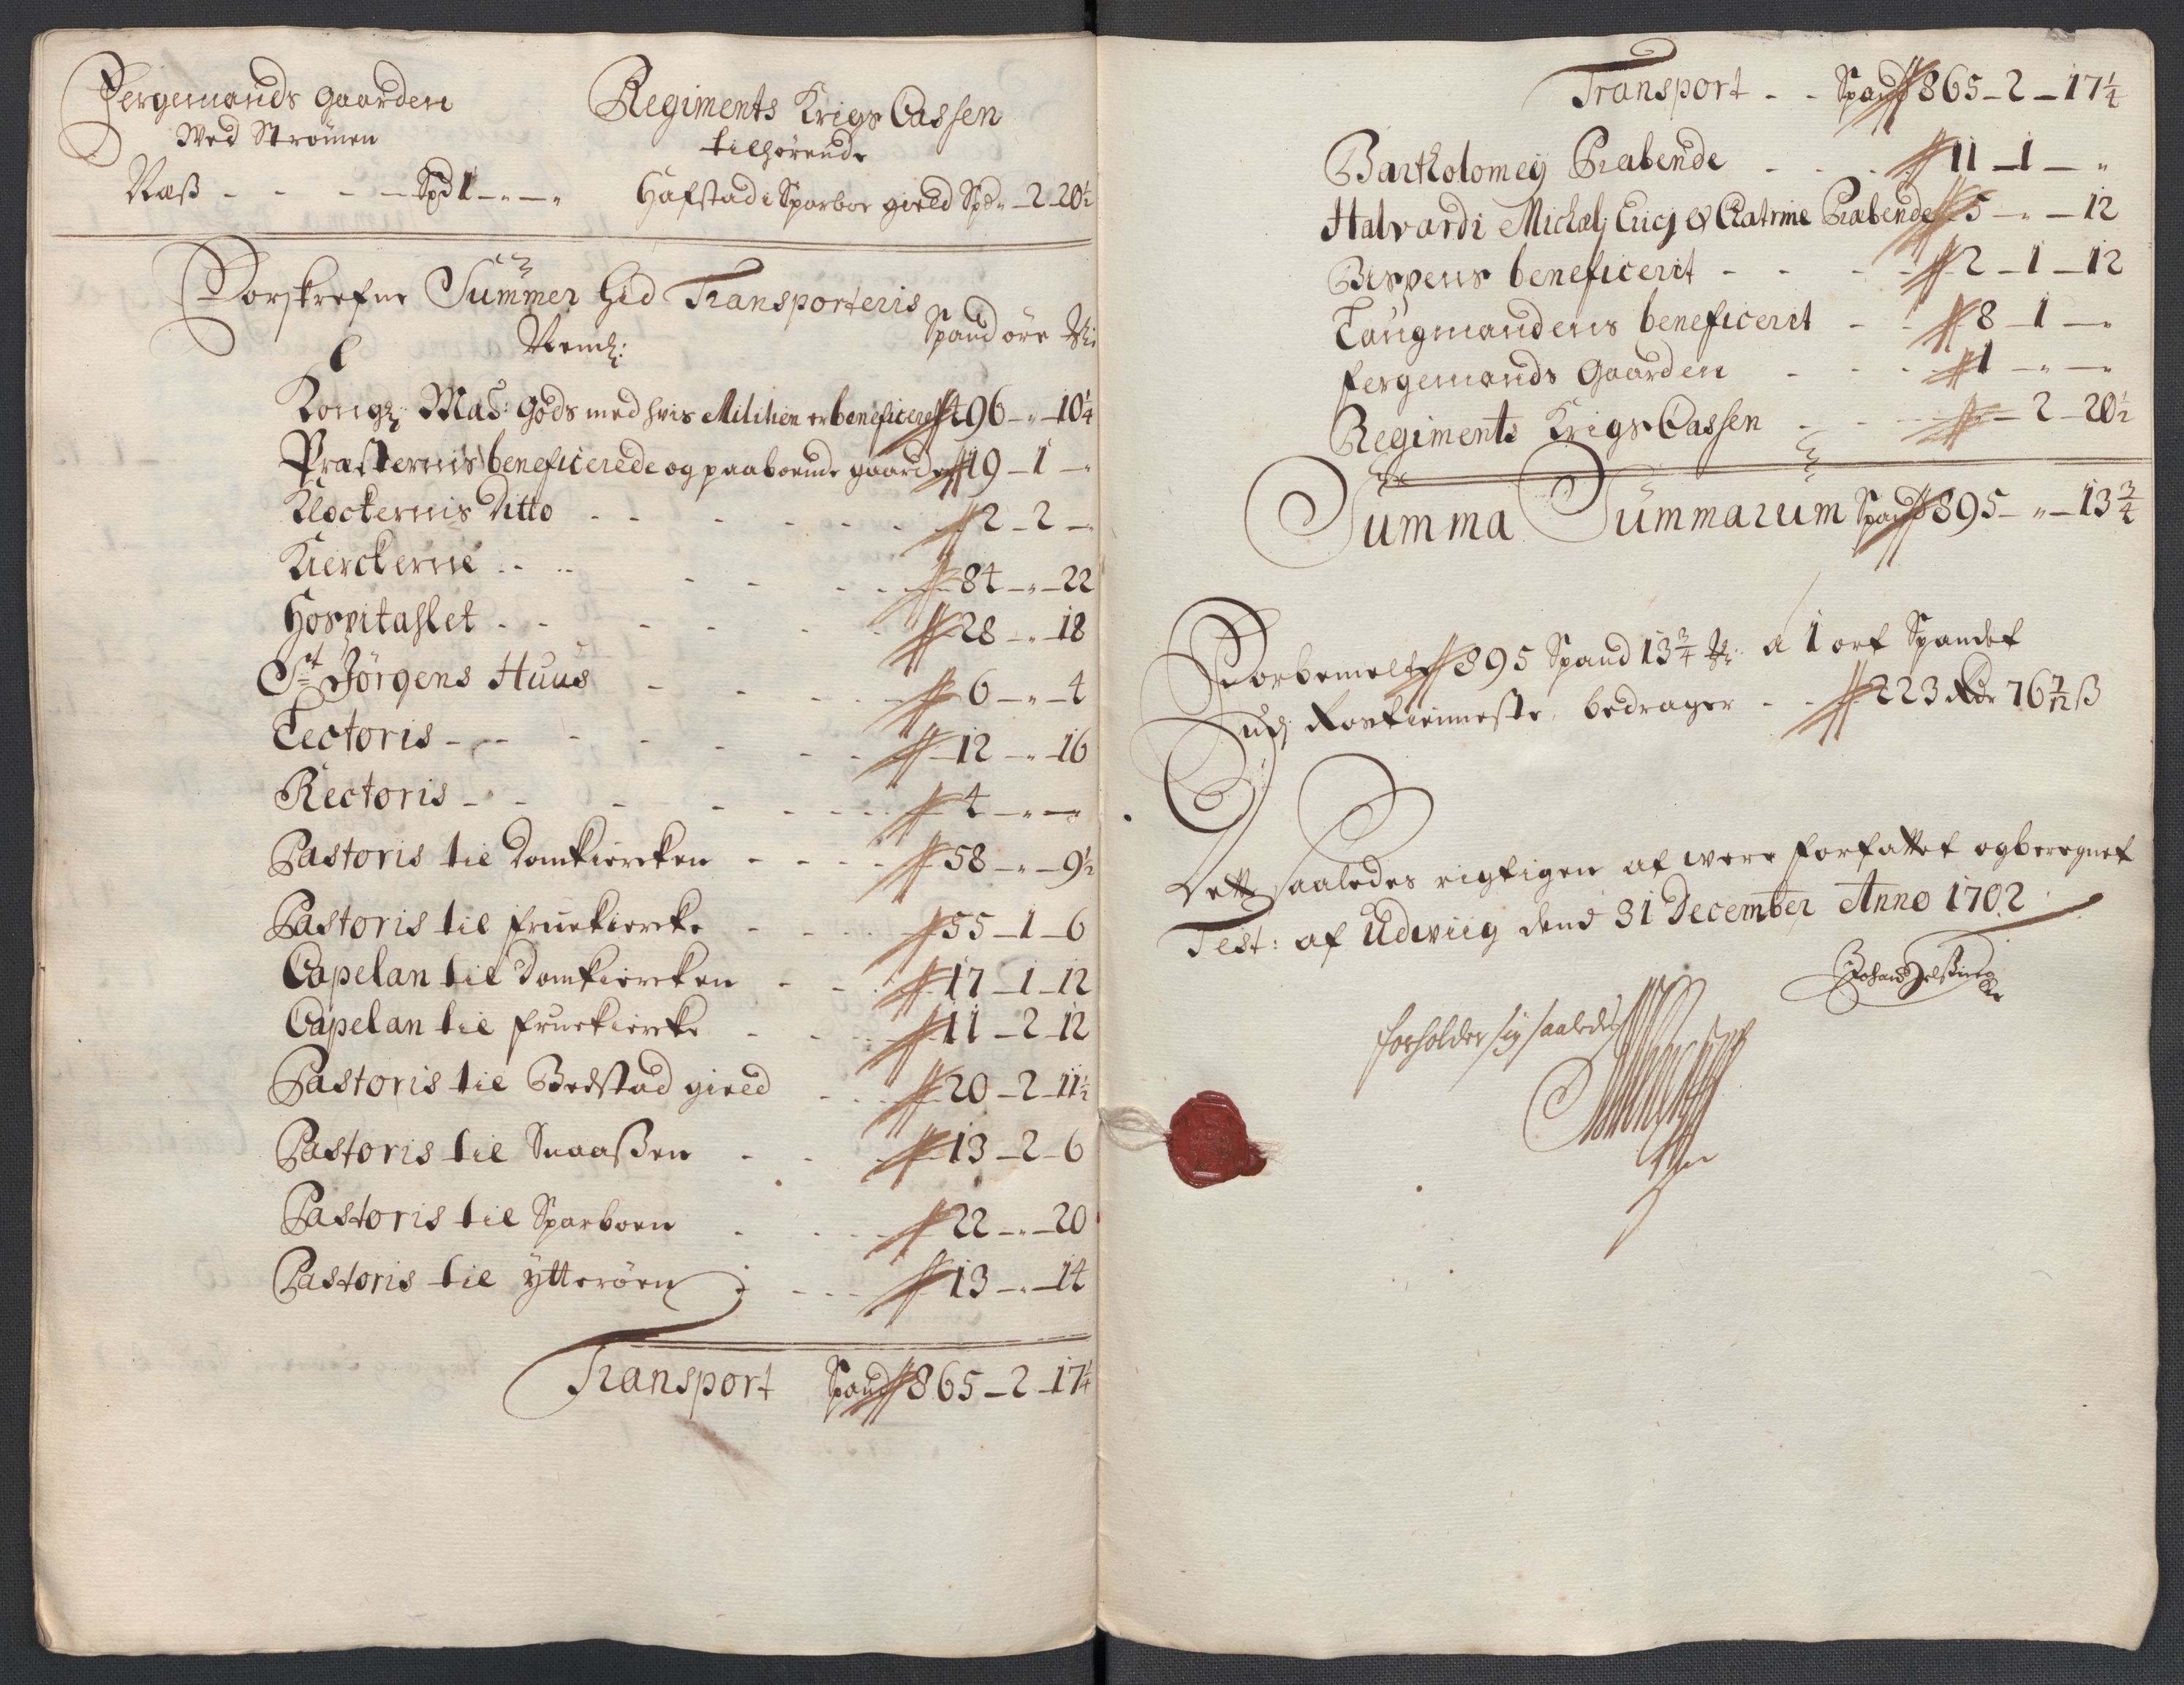 Fergemands Gaarden
Wed Strømen
Næß - - - - Spd 1 - " - "
Regiments Krigs Cassen
tilhørende
Hafstad i Sparboe gield Spd " - 2 - 20½
Forskrefne Summer hid Transporteris
Nemlig: Spand øre
Kongl: May: Gods med hvis Militien er beneficeret 496 - " - 10¼
Præsternis beneficerede og paaboende gaarde 19 - 1 - "
Klockernis Ditto - - 2 - 2 - "
Kierckerne - - 84 - " - 22
Hospitahlet - - 28 - " - 18
St Jörgens Huus - - 6 - " - 4
Lectoris - - 12 - " - 16
Rectoris - - 4 - " - "
Pastoris til Domkiercken - - 58 - " - 9½
Pastoris til Fruekiercke - - 55 - 1 - 6
Capelan til Domkiercken - - 17 - 1 - 12
Capelan til Fruekiercke - - 11 - 2 - 12
Pastoris til Bedstad gield - - 20 - 2 - 11½
Pastoris til Snaaßen - - 13 - 2 - 6
Pastoris til Sparboen - - 22 - " - 20
Pastoris til Ytterøen - - 13 - " - 14
Transport Spand 865 - 2 - 17¼
Transport - - Spand 865 - 2 - 17¼
Bartholomej Præbende - - 11 - 1 - "
Halvardi Michælj Ericj & Chatrine Præbende 5 - " - 12
Bispens beneficerit - - 2 - 1 - 12
Laugmandens beneficerit - - 8 - 1 - "
Fergemands Gaarden - - 1 - " - "
Regiments Krigs Cassen - - " - 2 - 20½
Summa Summarum Spand 895 - " - 13¾
Forbemelte 895 Spand 13¾ a 1 ort Spandet
udj Rostieniste, bedrager - - 223 Rdr 76 7/12 ß
Dette saaledes rigtigen at were forfattet og beregnet
Test: af Udwiig dend 31 December Anno 1702
forholder sig saaledes